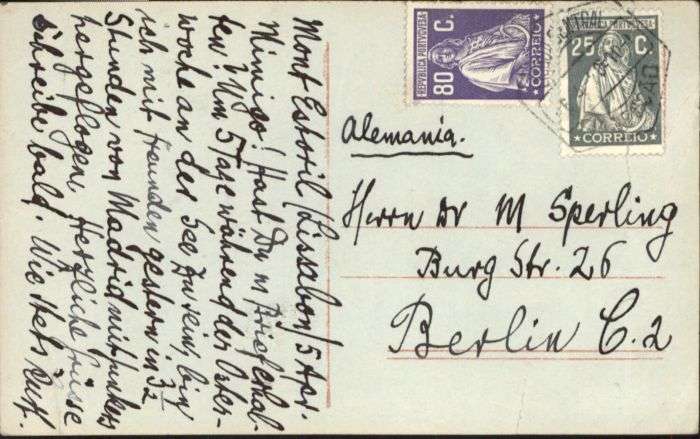 Mont Estoril (Lissabon) 5 Apr.
Mimigo! Hast Du m Brief erhal-
ten? Um 5 Tage während der Oster-
woche an der See zu sein, bin
ich mit Freunden gestern in 3½
Stunden von Madrid mit Junkers
hergeflogen. Herzliche Grüsse
Schreibe bald. Wie stets
REPUBLICA PORTUGUESA
80 C.
CORREIO
REPUBLICA PORTUGUESA
25 C.
CORREIO
CENTRAL
Alemania.
Herrn Dr M Sperling
Burg Str. 26
Berlin C. 2